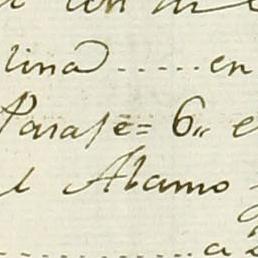 lina ...... en
Paraje = 6,, e
l Alamo
............... a 2